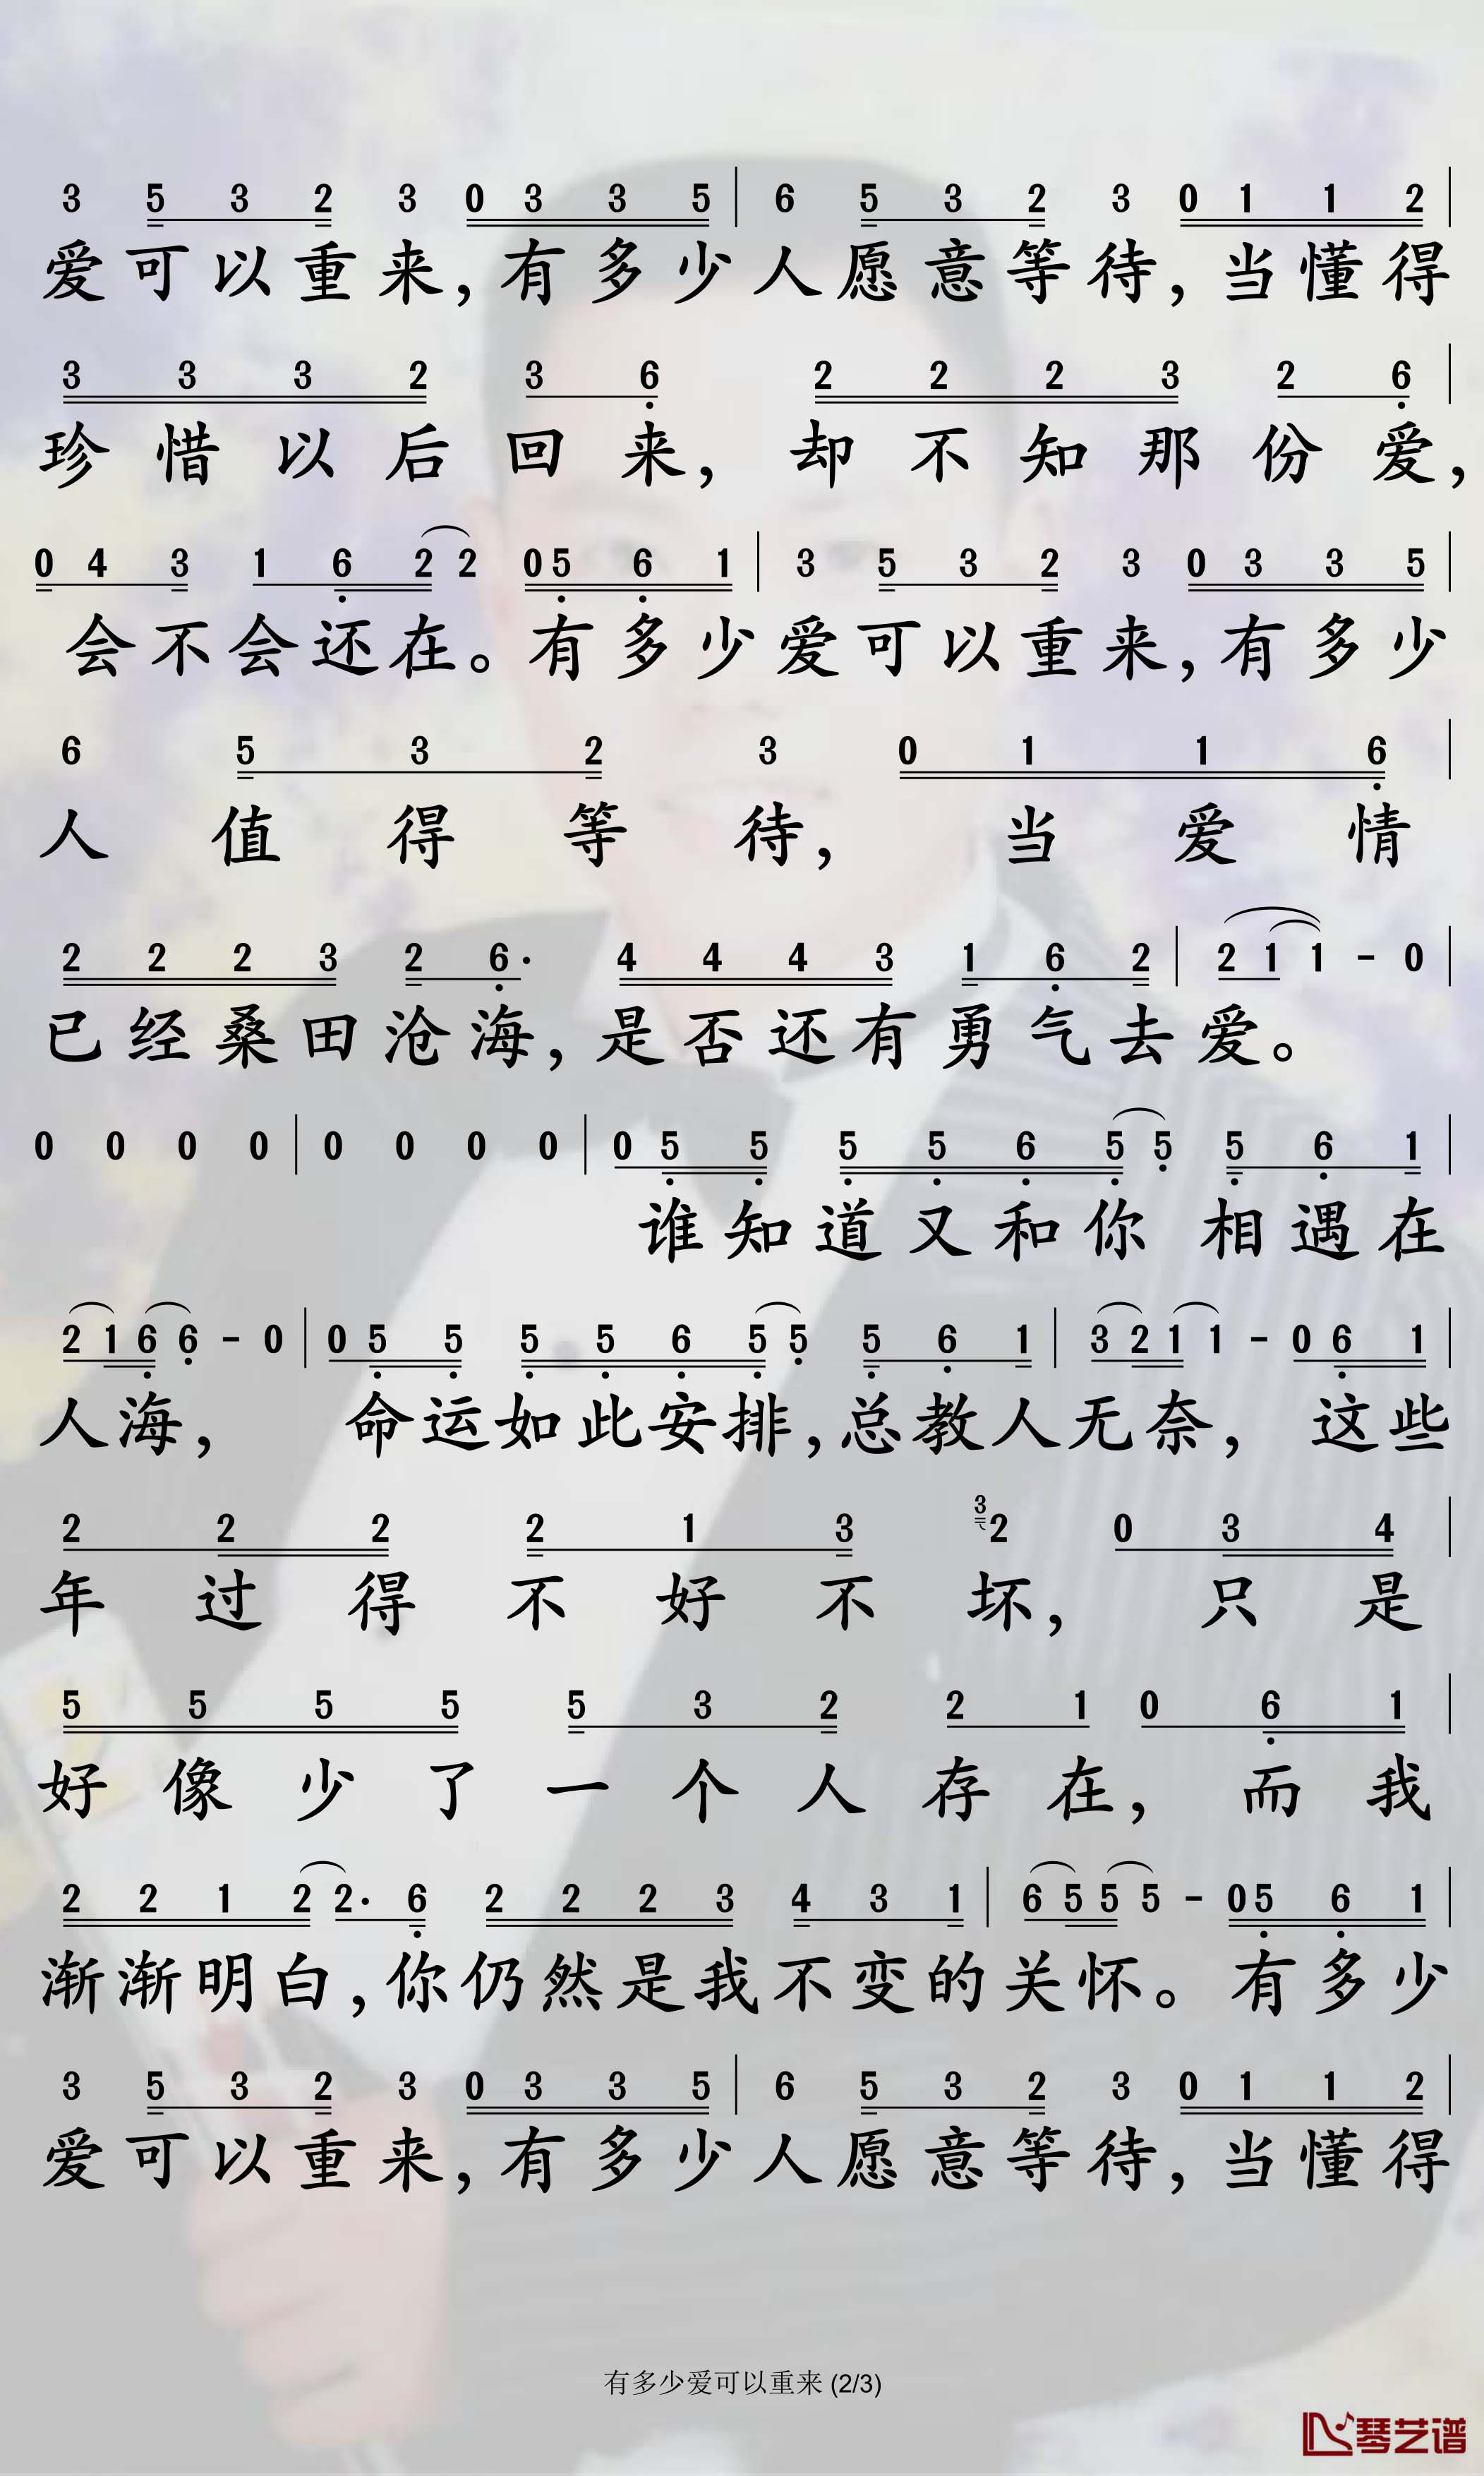 3 5 3 2 3 0 3 3 5 | 6 5 3 2 3 0 1 1 2 |
爱可以重来,有多少人愿意等待,当懂得
3 3 3 2 3 6 2 2 2 3 2 6 |
珍惜以后回来,却不知那份爱,
0 4 3 1 6 2 2 0 5 6 1 | 3 5 3 2 3 0 3 3 5 |
会不会还在。有多少爱可以重来,有多少
6 5 3 2 3 0 1 1 6 |
人值得等待,当爱情
2 2 2 3 2 6· 4 4 4 3 1 6 2 | 2 1 1 - 0 |
已经桑田沧海,是否还有勇气去爱。
0 0 0 0 | 0 0 0 0 | 0 5 5 5 5 6 5 5 5 6 1 |
谁知道又和你相遇在
2 1 6 6 - 0 | 0 5 5 5 5 6 5 5 5 6 1 | 3 2 1 1 - 0 6 1 |
人海,命运如此安排,总教人无奈,这些
2 2 2 2 1 3 3 2 0 3 4 |
年过得不好不坏,只是
5 5 5 5 5 3 2 2 1 0 6 1 |
好像少了一个人存在,而我
2 2 1 2 2· 6 2 2 2 3 4 3 1 | 6 5 5 5 - 0 5 6 1 |
渐渐明白,你仍然是我不变的关怀。有多少
3 5 3 2 3 0 3 3 5 | 6 5 3 2 3 0 1 1 2 |
爱可以重来,有多少人愿意等待,当懂得
有多少爱可以重来 (2/3)
琴艺谱